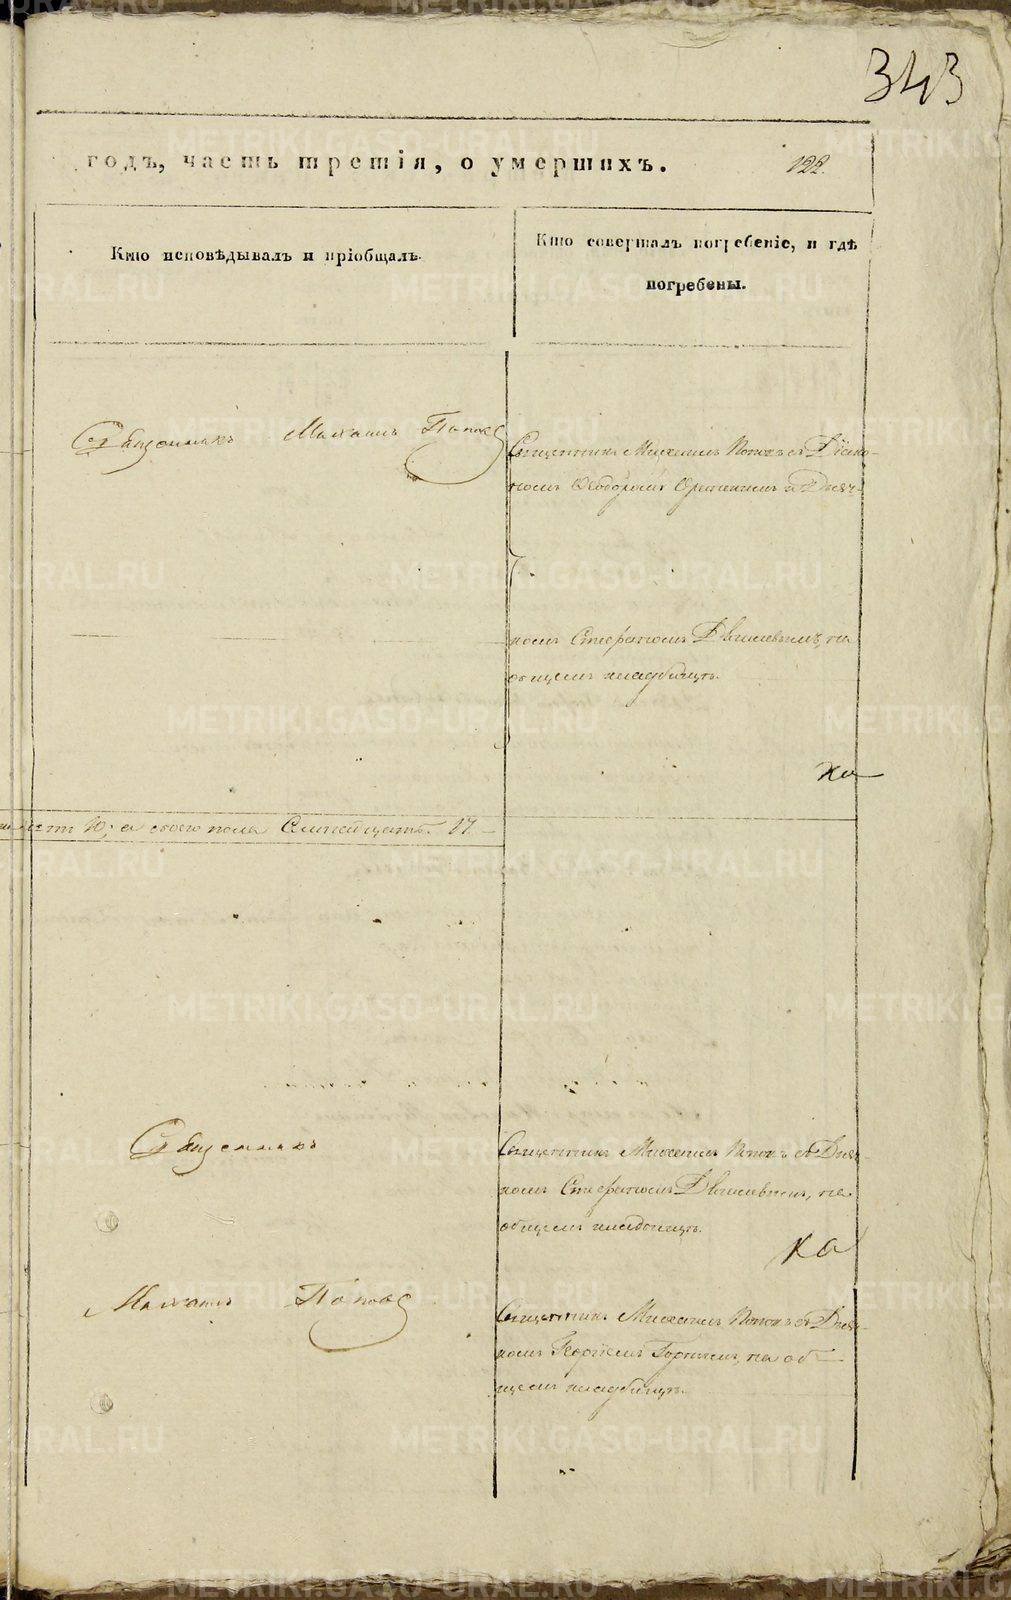 343
годъ, часть третія, о умершихъ. 122.
Кто исповѣдывалъ и пріобщалъ.
Кто совершалъ погребеніе, и гдѣ
погребены.
Священникъ Михаилъ Поповъ
Священникъ Михаилъ Поповъ съ Діако-
номъ Ѳеодоромъ и Дьяч-
комъ Стефаномъ на
общемъ кладбищѣ.
ха
10; а обоего пола Семнадцать. 17
Священникъ
Священникъ Михаилъ Поповъ съ Дьяч-
комъ Стефаномъ на
общемъ кладбищѣ.
ха
Михаилъ Поповъ
Священникъ Михаилъ Поповъ съ Дьяч-
комъ Георгіемъ на об-
щемъ кладбищѣ.
METRIKI.GASO-URAL.RU